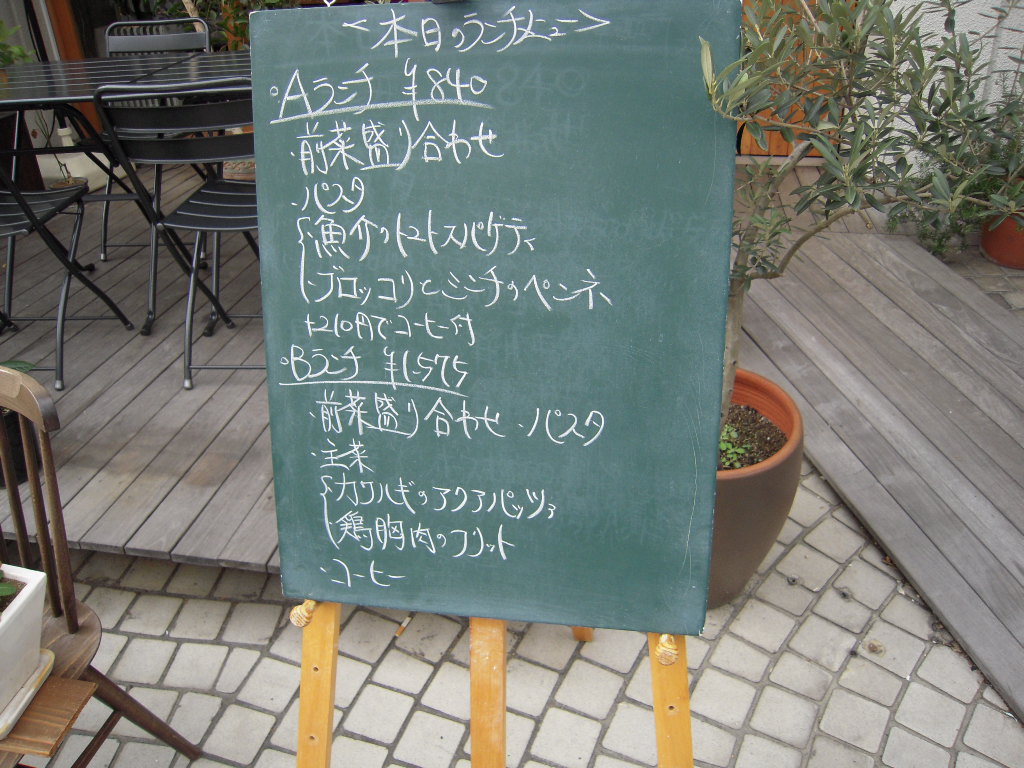 <本日のランチメニュー>
・Aランチ ¥840
・前菜盛り合わせ
・パスタ
{・魚介のトマトスパゲティ
・ブロッコリとミンチのペンネ
+210円でコーヒー付
・Bランチ ¥1,575
・前菜盛り合わせ ・パスタ
・主菜
{・カワハギのアクアパッツァ
・鶏胸肉のフリット
・コーヒー